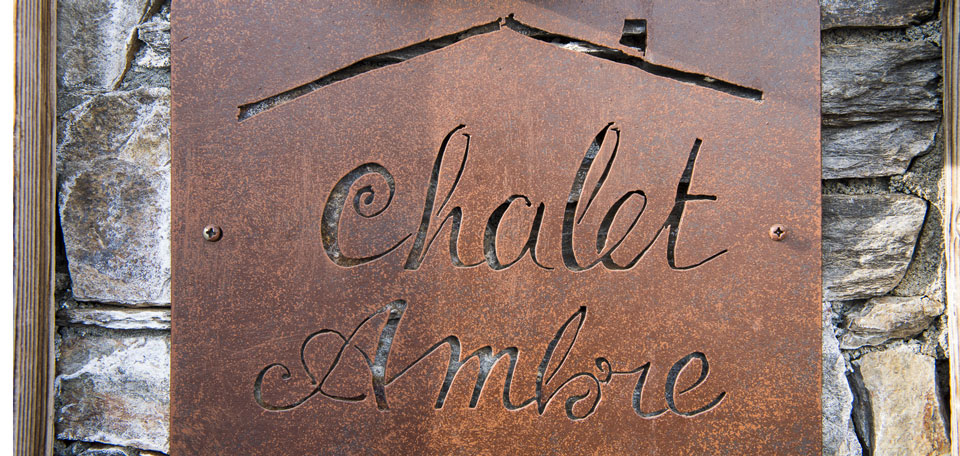 Chalet
Ambre